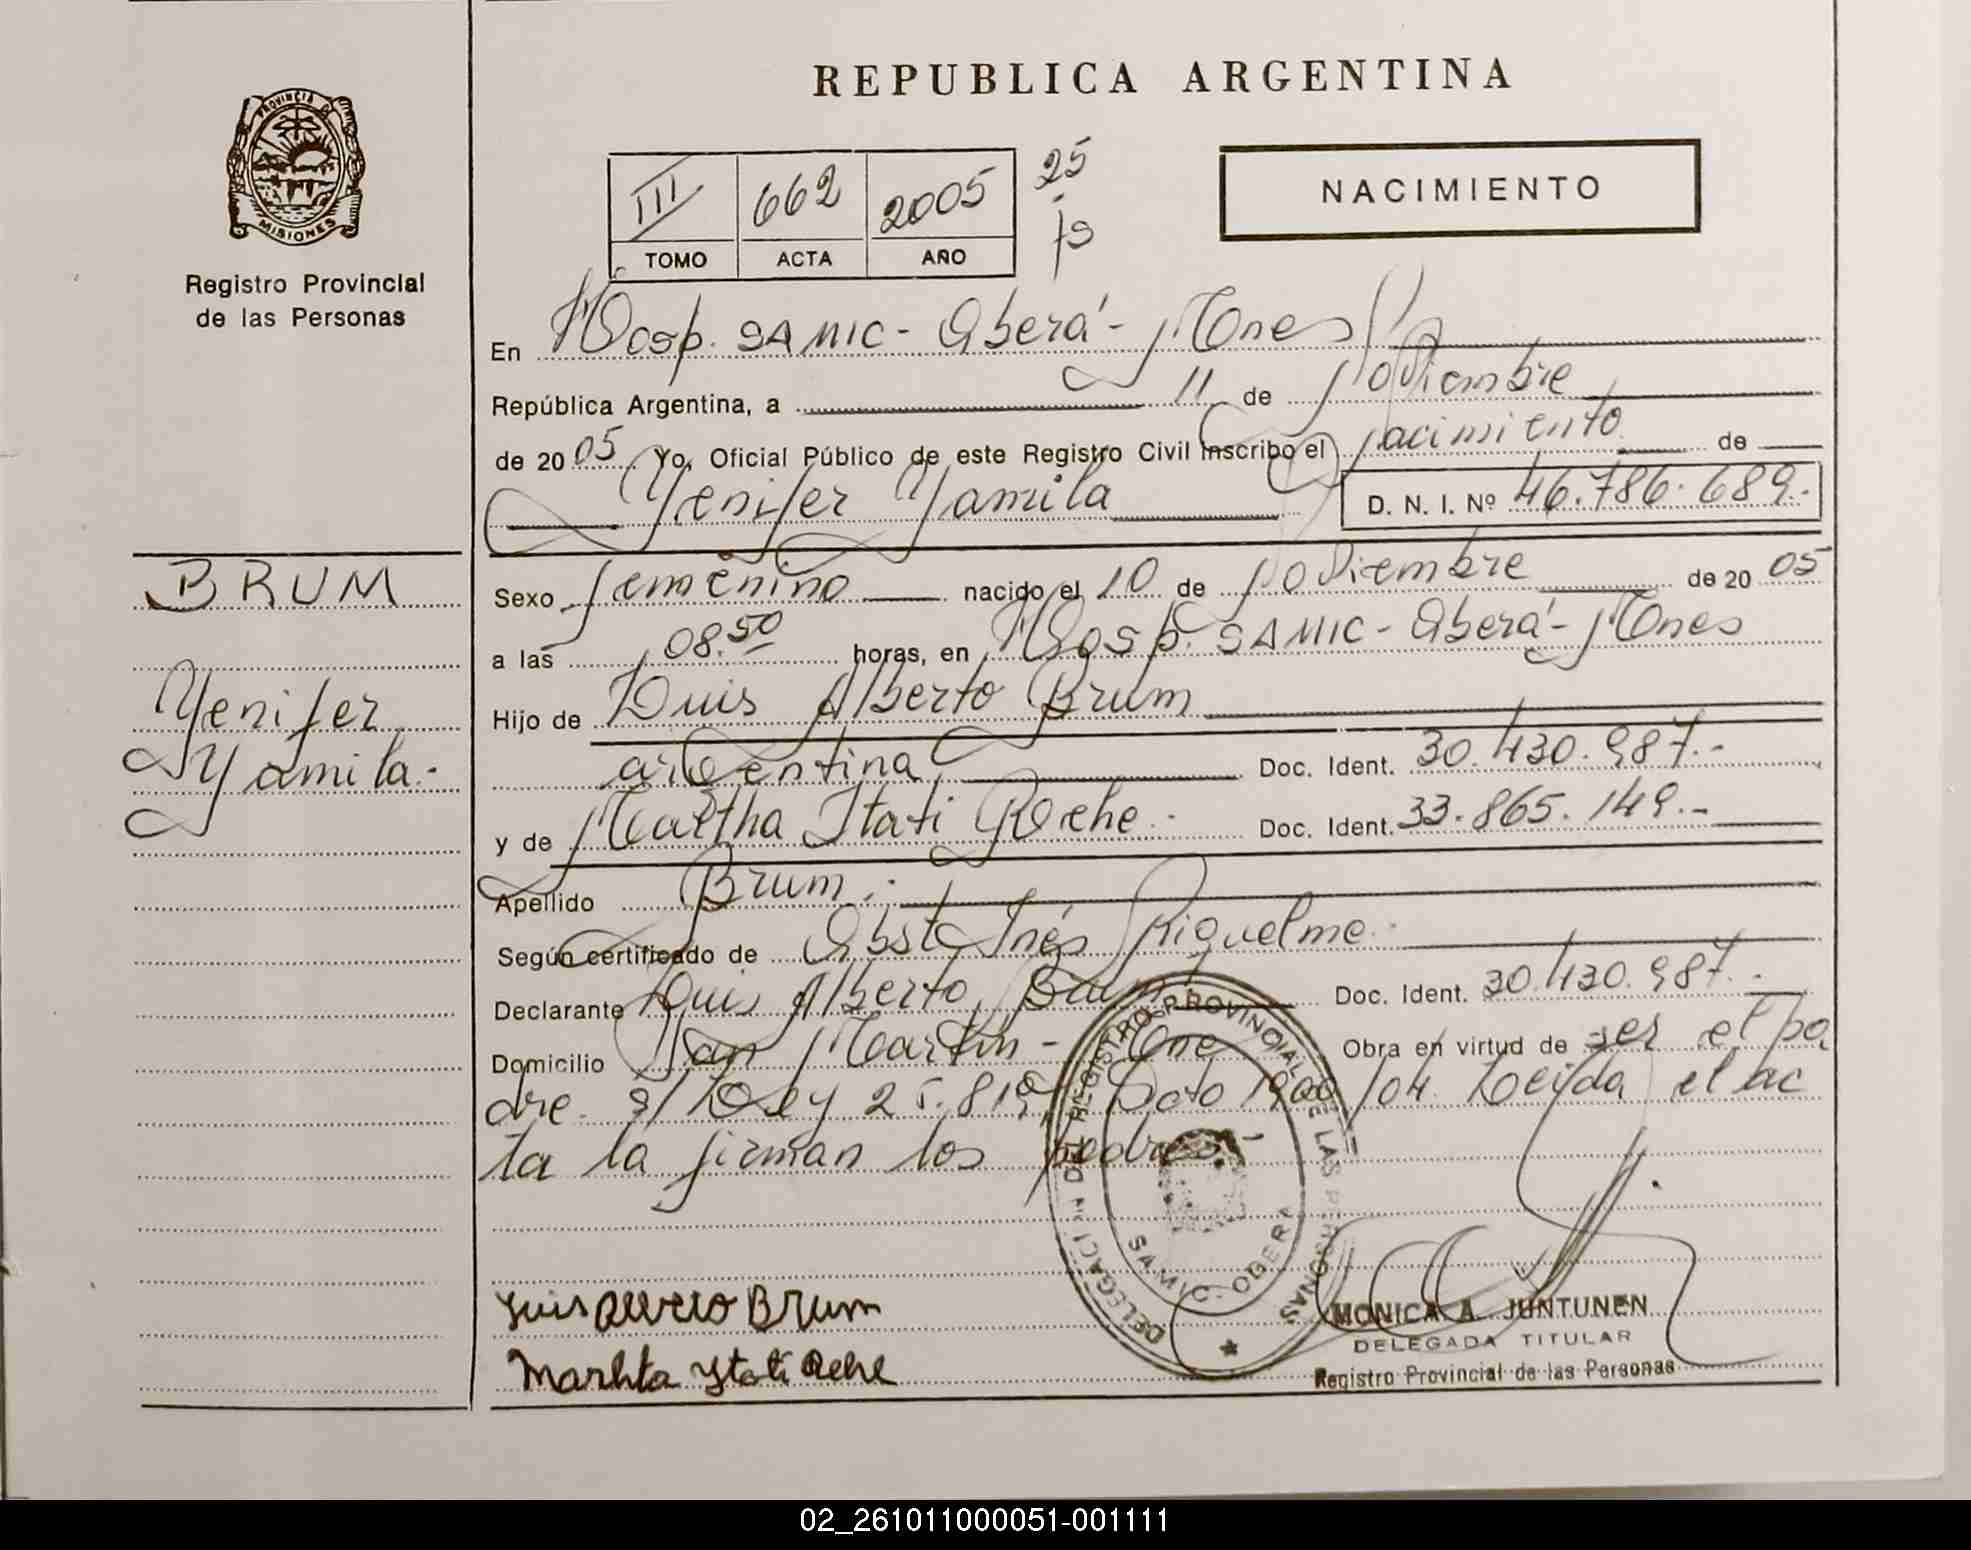 REPUBLICA ARGENTINA
PROVINCIA DE
MISIONES
Registro Provincial
de las Personas
III 662 2005 25
TOMO ACTA AÑO
js
NACIMIENTO
En Hosp. SAMIC - Oberá - Mnes
República Argentina, a 11 de Noviembre
de 2005. Yo, Oficial Público de este Registro Civil inscribo el nacimiento de
Yenifer Yamila D. N. I. Nº 46.786.689.-
BRUM
Yenifer
Yamila.-
Sexo femenino nacido el 10 de Noviembre de 2005
a las 08.50 horas, en Hosp. SAMIC - Oberá - Mnes
Hijo de Luis Alberto Brum
argentina Doc. Ident. 30.430.987.-
y de Martha Itati Reche.- Doc. Ident. 33.865.149.-
Apellido Brum.-
Según certificado de Obst. Inés Riquelme.-
Declarante Luis Alberto Brum Doc. Ident. 30.430.987.-
Domicilio San Martín - Mne Obra en virtud de ser el pa
dre. s/ Ley 25.819, Dcto 1900/04. Leída el ac
ta la firman los padres.-
DELEGACI N DEL REGISTRO PROVINCIAL DE LAS PERSONAS
SAMIC - OBERA
Luis Alberto Brum
Marhta Itati Rehe
MONICA A. JUNTUNEN
DELEGADA TITULAR
Registro Provincial de las Personas
02_261011000051-001111